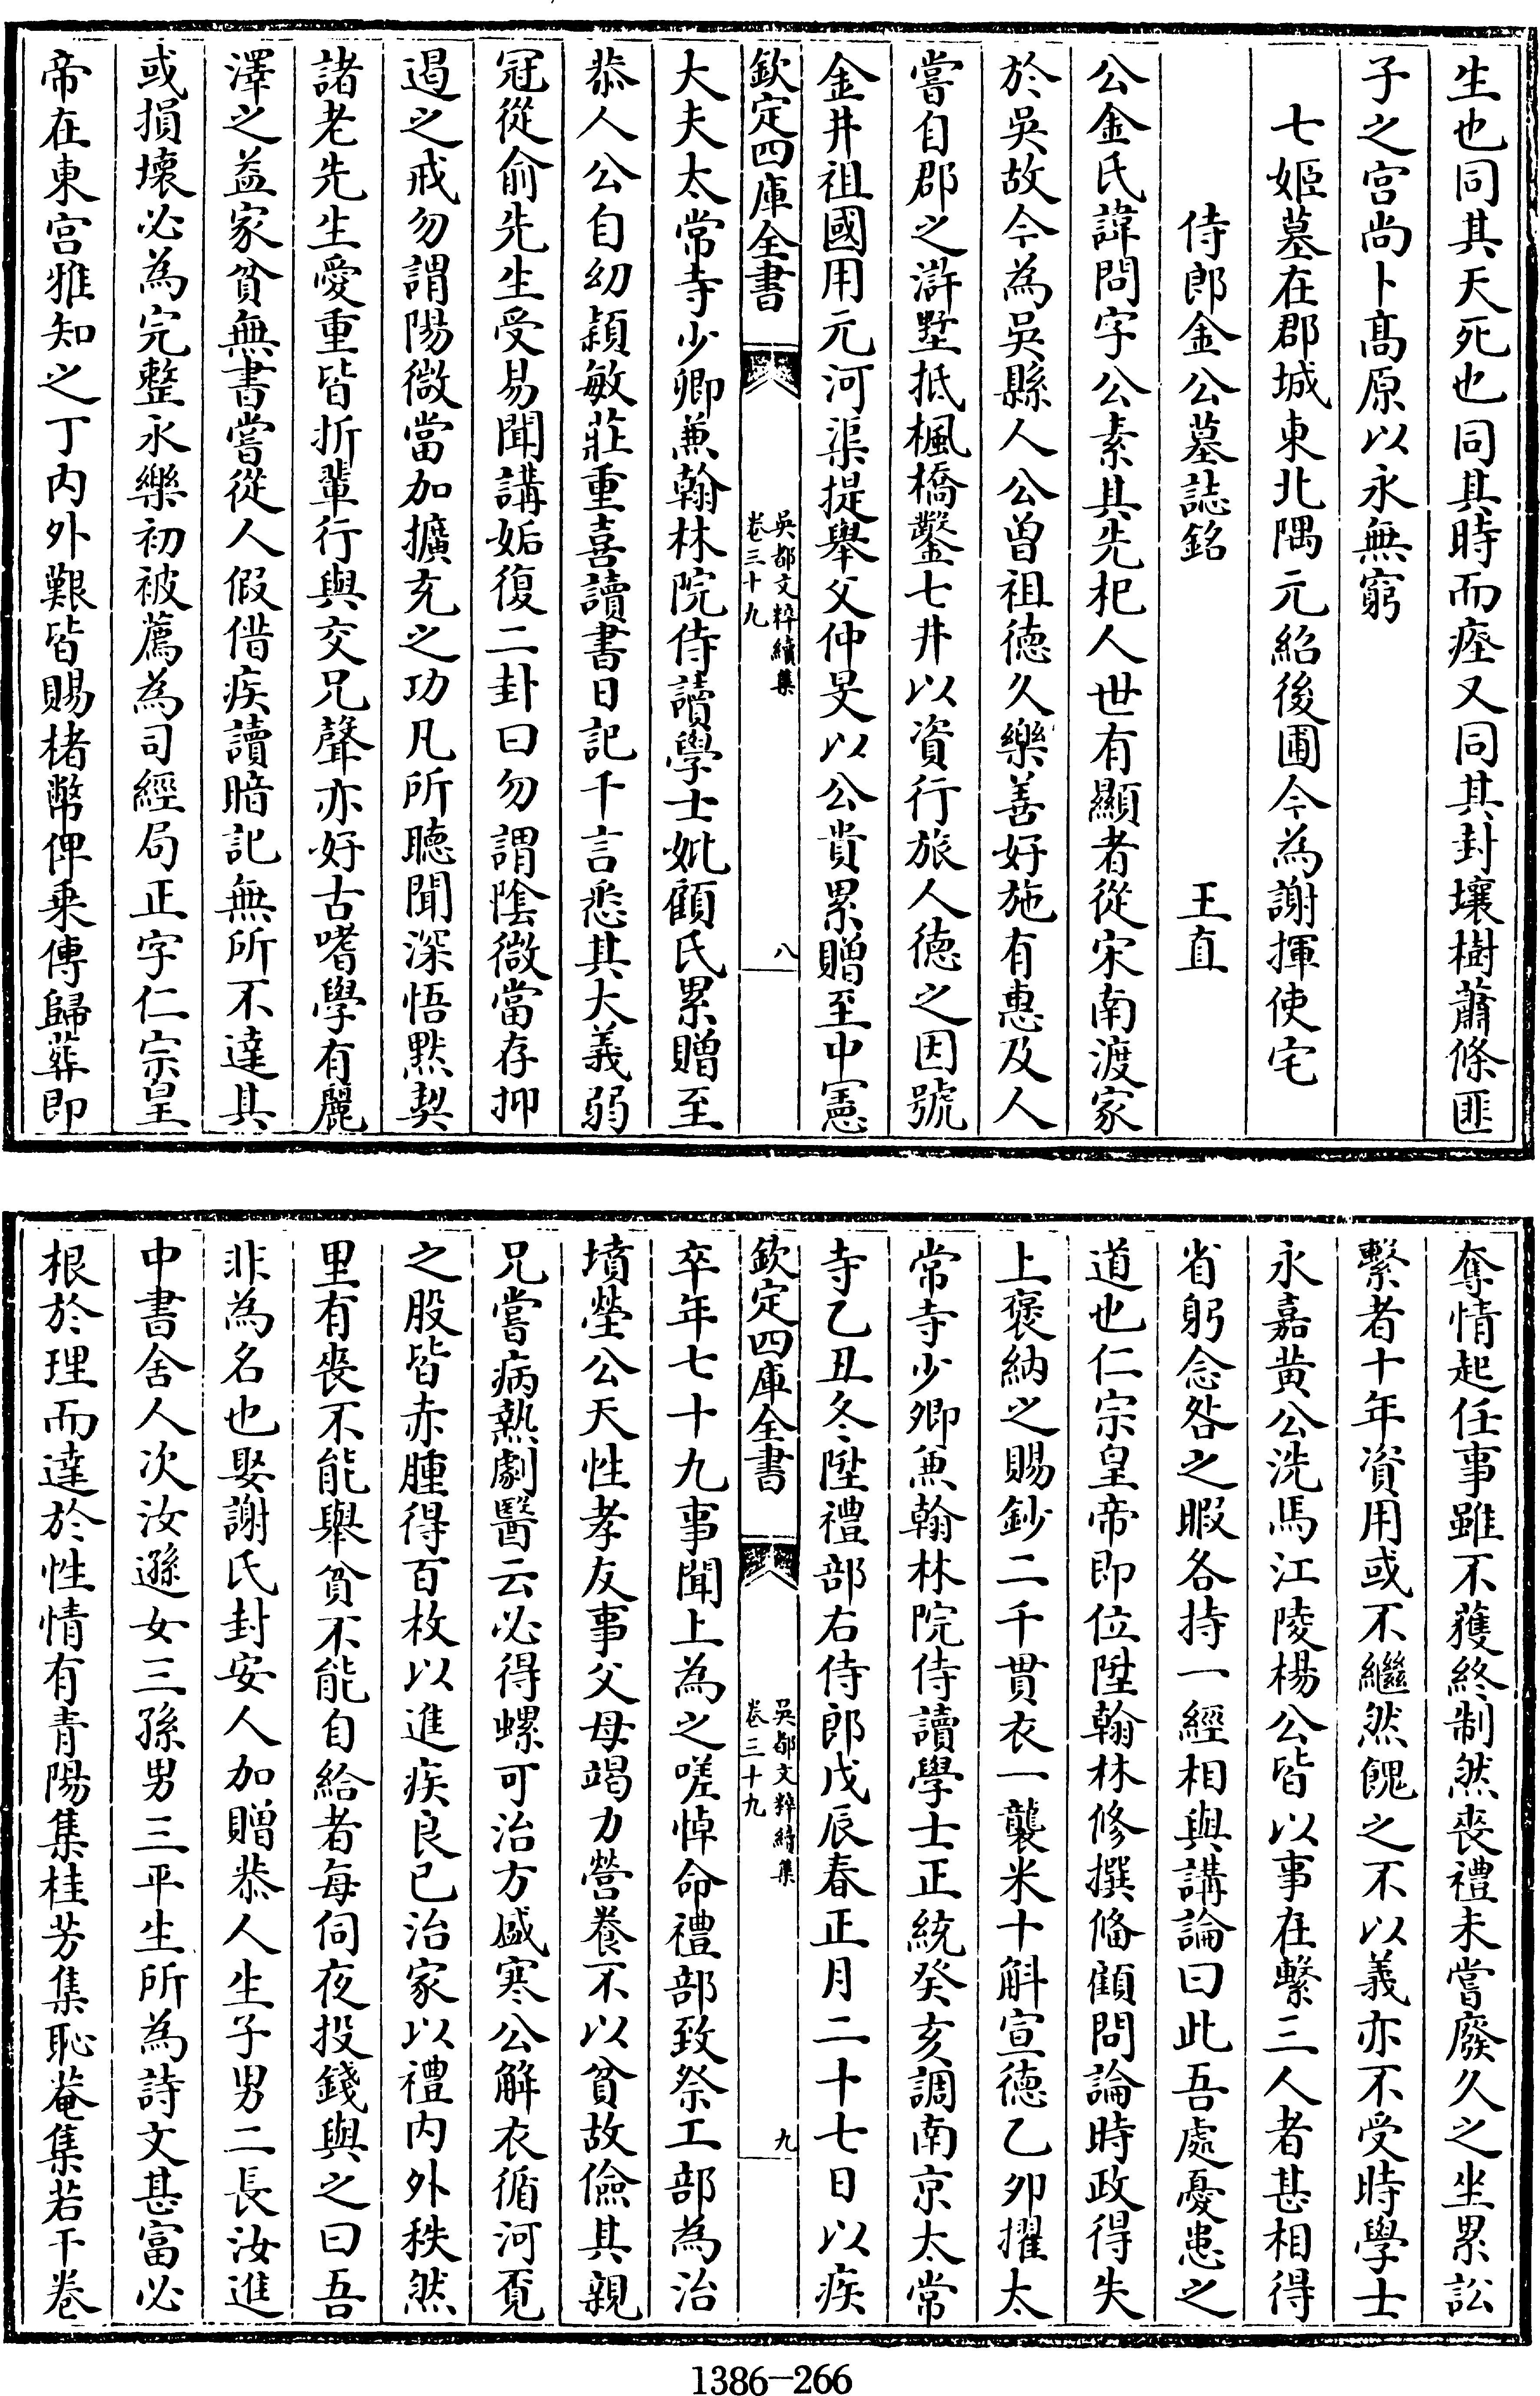 生也同其夭死也同其時而瘞又同其封壤樹蕭條匪
子之宫尚卜髙原以永無窮
七姬墓在郡城東北隅元紹後圃今為謝揮使宅
侍郎金公墓誌銘 王直
公金氏諱問字公素其先杞人世有顯者從宋南渡家
於吳故今為吳縣人公曽祖徳久樂善好施有惠及人
嘗自郡之滸墅抵楓橋鑿七井以資行旅人德之因號
金井祖國用元河渠提舉父仲旻以公貴累贈至中憲
欽定四庫全書 吳都文粹續集 卷三十九 八
大夫太常寺少卿兼翰林院侍讀學士妣顧氏累贈至
恭人公自幼穎敏莊重喜讀書日記千言悉其大義弱
冠從俞先生受易聞講姤復二卦曰勿謂陰微當存抑
遏之戒勿謂陽微當加擴充之功凡所聽聞深悟黙契
諸老先生愛重皆折輩行與交兄聲亦好古嗜學有麗
澤之益家貧無書嘗從人假借疾讀暗記無所不達其
或損壞必為完整永樂初被薦為司經局正字仁宗皇
帝在東宫雅知之丁内外艱皆賜楮幣俾乗傳歸葬即
奪情起任事雖不獲終制然喪禮未嘗廢久之坐累訟
繫者十年資用或不繼然餽之不以義亦不受時學士
永嘉黄公洗馬江陵楊公皆以事在繫三人者甚相得
省躬念咎之暇各持一經相與講論曰此吾處憂患之
道也仁宗皇帝即位陞翰林修撰俻顧問論時政得失
上褒納之賜鈔二千貫衣一襲米十斛宣德乙卯擢太
常寺少卿兼翰林院侍讀學士正統癸亥調南京太常
寺乙丑冬陞禮部右侍郎戊辰春正月二十七日以疾
欽定四庫全書 吳都文粹續集 卷三十九 九
卒年七十九事聞上為之嗟悼命禮部致祭工部為治
墳塋公天性孝友事父母竭力營養不以貧故儉其親
兄嘗病熱劇醫云必得螺可治方盛寒公解衣循河覓
之股皆赤腫得百枚以進疾良已治家以禮内外秩然
里有喪不能舉貧不能自給者每伺夜投錢與之曰吾
非為名也娶謝氏封安人加贈恭人生子男二長汝進
中書舍人次汝遜女三孫男三平生所為詩文甚富必
根於理而達於性情有青陽集桂芳集恥菴集若干卷
1386-266